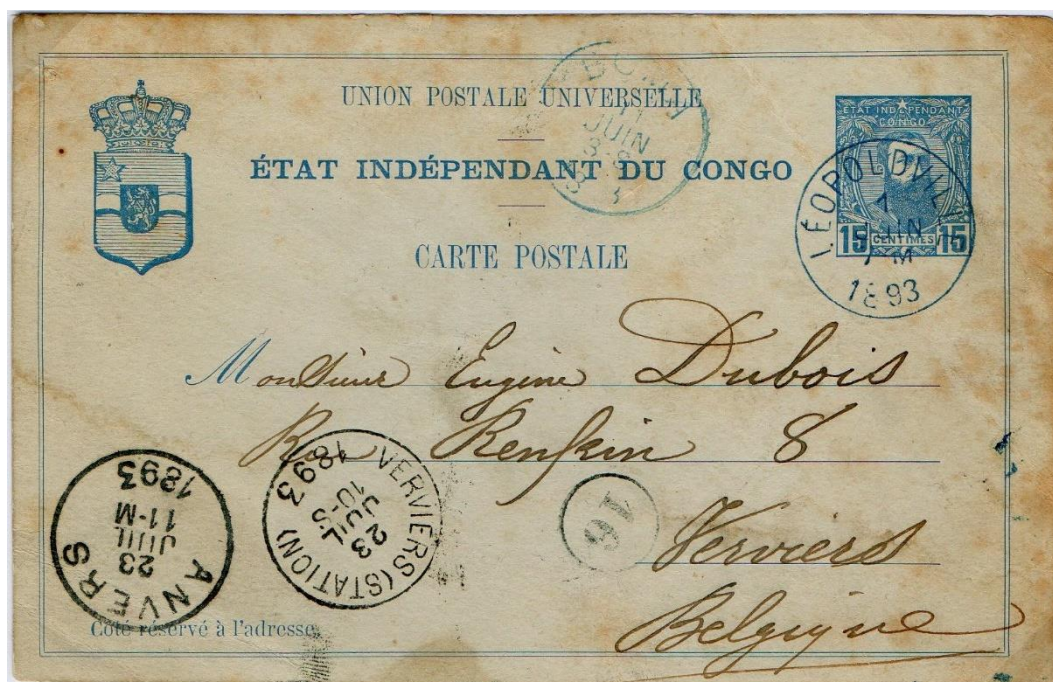 UNION POSTALE UNIVERSELLE
ÉTAT INDÉPENDANT DU CONGO
CARTE POSTALE
ÉTAT INDÉPENDANT
CONGO
15 CENTIMES 15
LÉOPOLDVILLE
1
JUIN
7-M
1893
BOMA
11
JUIN
Monsieur Eugène Dubois
Rue Renkin 8
Verviers
Belgique
16
VERVIERS (STATION)
23
JUIL
10-S
1893
ANVERS
23
JUIL
11-M
1893
Côté réservé à l'adresse.